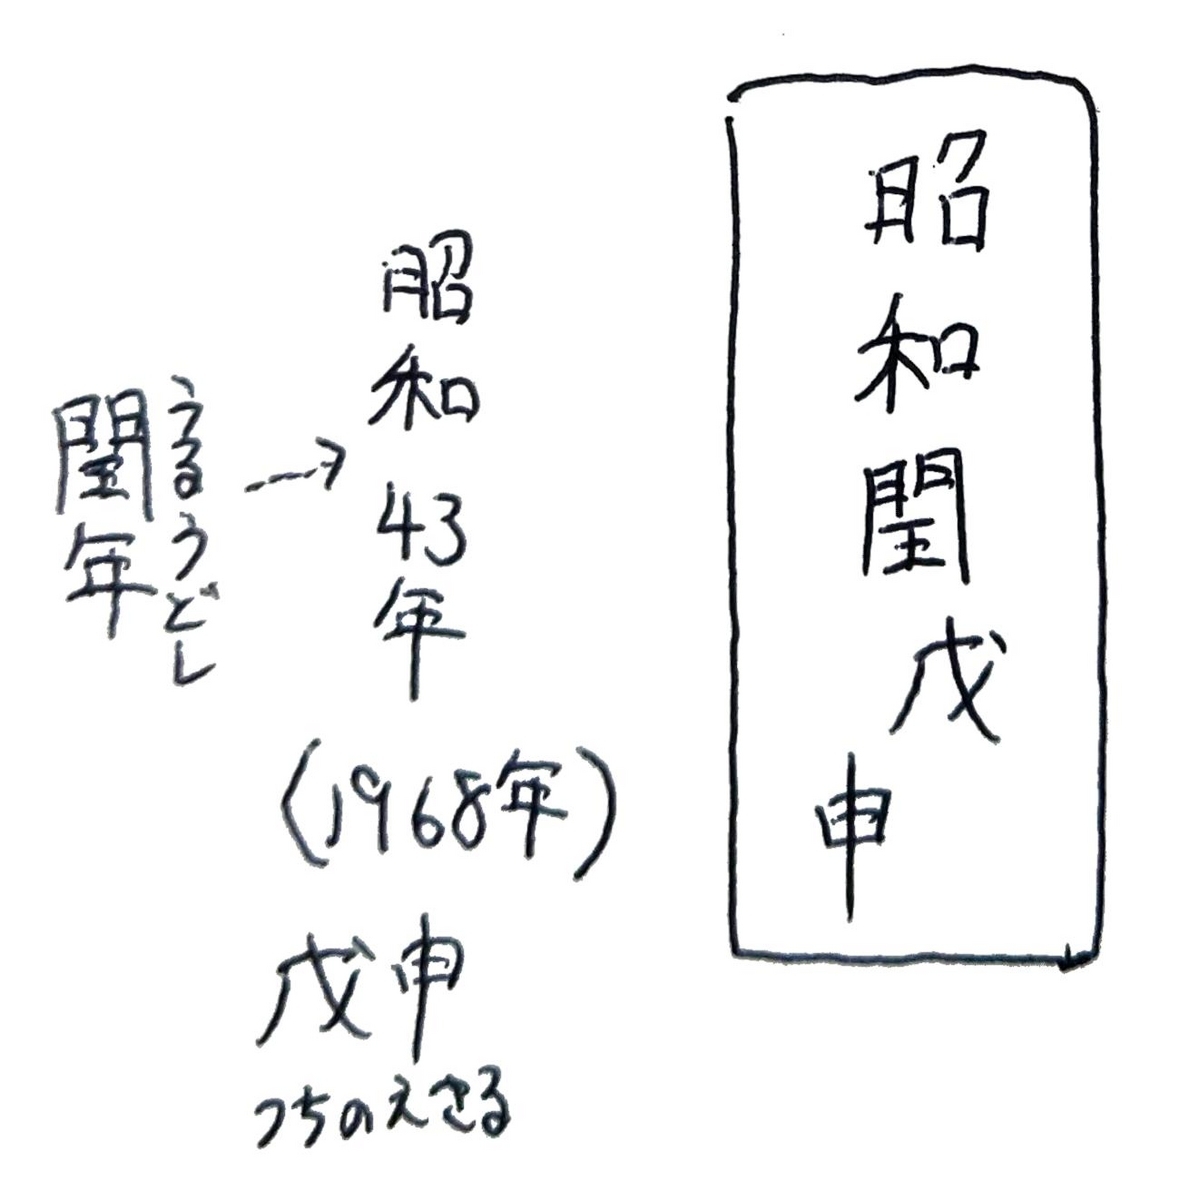 昭和閏戊申
昭和43年
(1968年)
戊申
つちのえさる
うるうどし
閏年